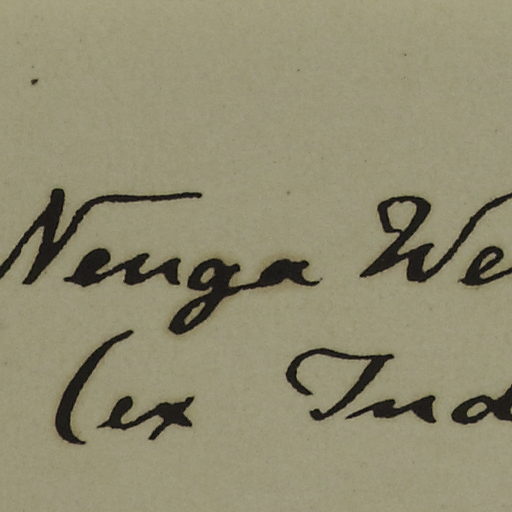 Nenga We
(ex Ind